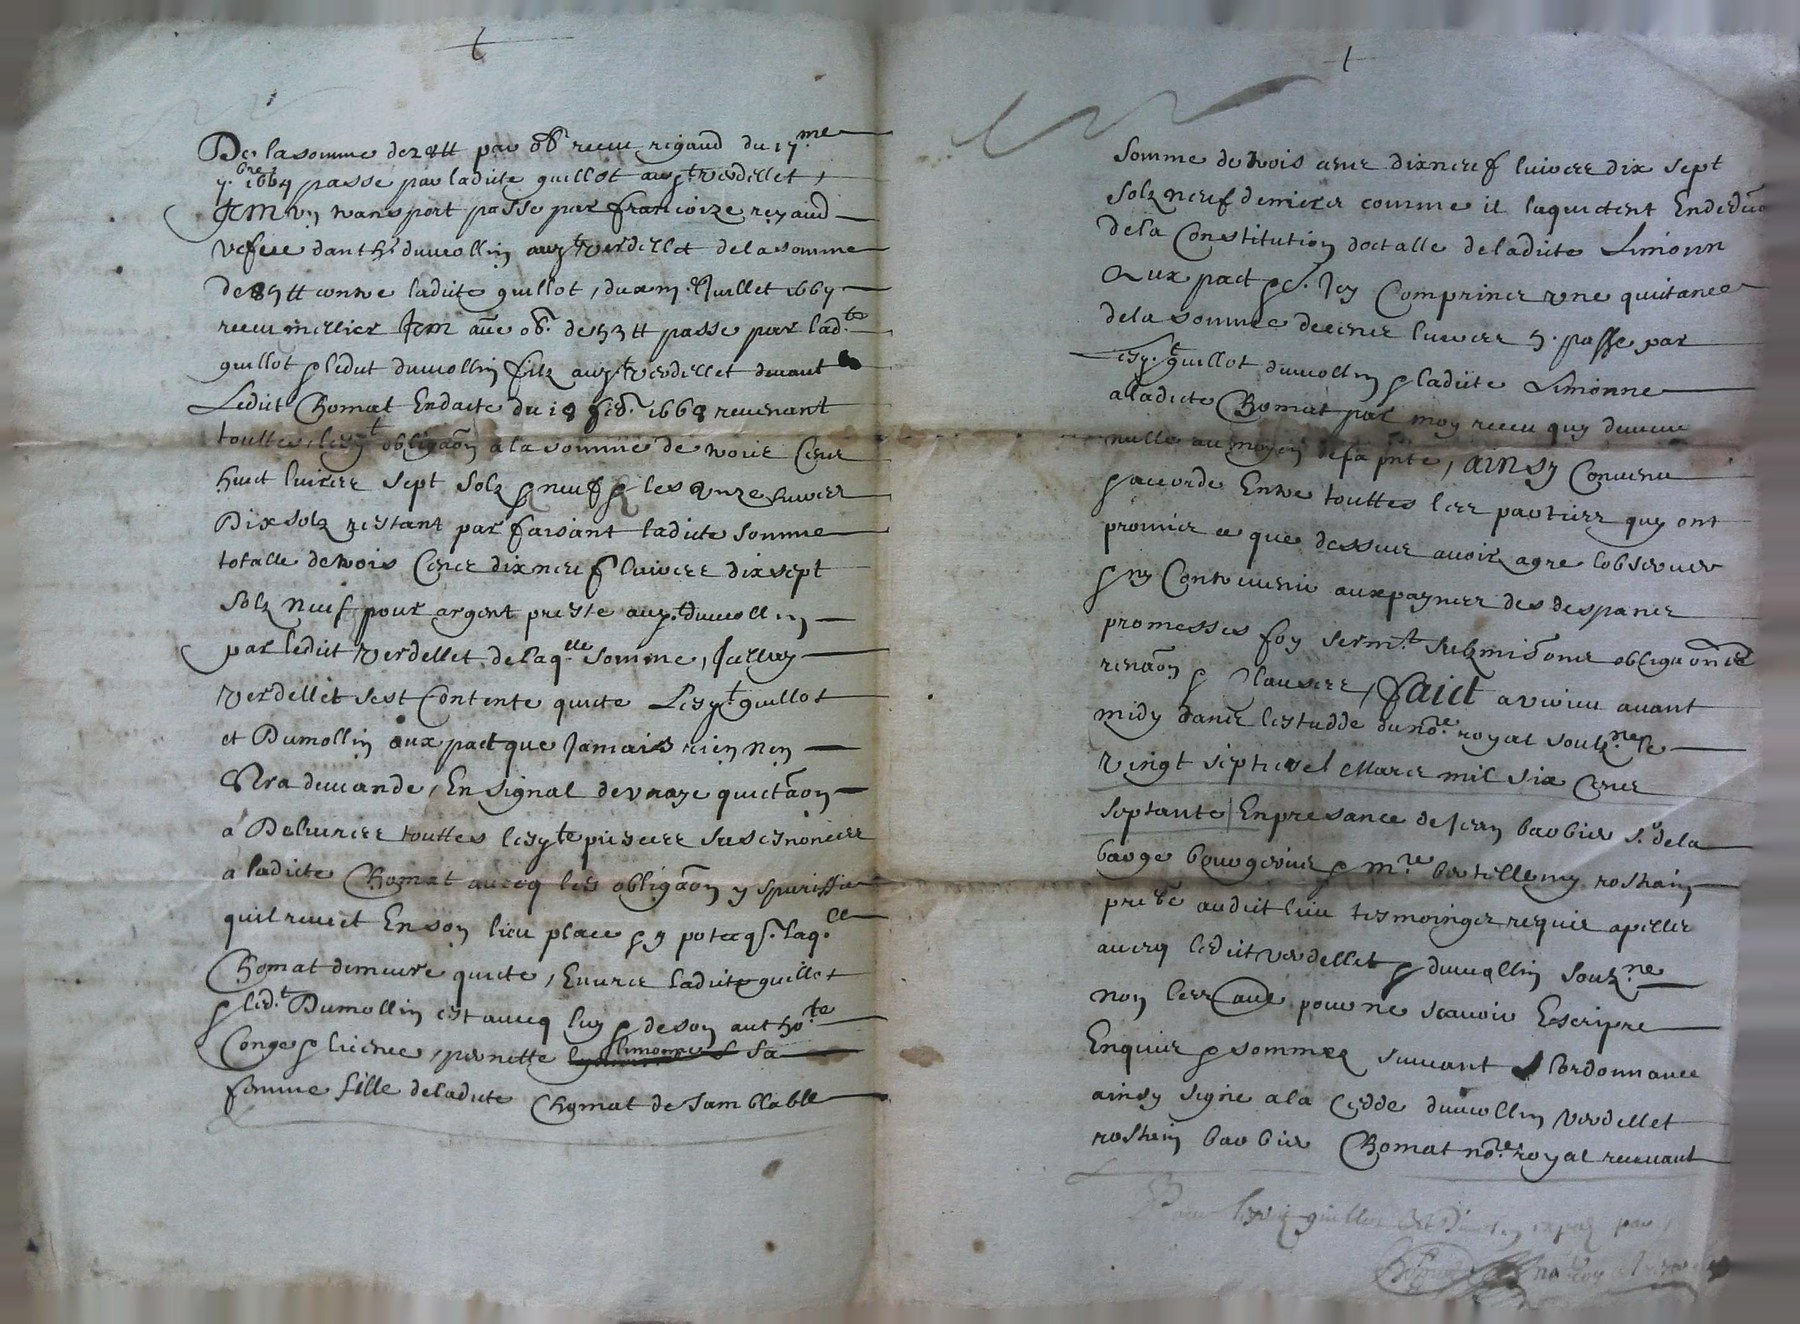 t
De la somme de 28 ₶ par ob. receu rigaud du 17.me
7.bre 1664 passe par ladicte guillot ausyt verdellet,
Jtm vn transport passe par francoize reynaud
vefue danthe dumollin ausyt verdellet de la somme
de 87 ₶ contre ladicte guillot, du xm. Juillet 1667
receu millier Jtm aue ob. de 53 ₶ passe par lad.te
guillot & ledict dumollin filz ausyt verdellet deuant
Ledict Chomat En dacte du 18 feb. 1668 reuenant
touttes lesyt obligaōn a la somme de trois Cens
huict liures sept solz & neuf & les vnze liures
Dix solz restant parfaisant ladicte somme
totalle de trois Cens dix neuf liures dix sept
solz neuf pour argent preste ausy.t dumollin
par ledict verdellet de laq.lle somme, Jcelluy
verdellet sest Contente quicte Lesyt guillot
et Dumollin aux pact que Jamais rien nen
sera demande, En signal de vraye quictāon
a Deliurees touttes lesyte pieces susesnoncees
a ladicte Chomat auecq les obligāon y
quil remet En son lieu place & ypotecqs. laq.lle
Chomat demeure quicte, Enuers ladicte guillot
& led.t Dumollin est auecq luy & de son autho.te
Conge & licence, pernette limonne sa
femme fille de ladicte Chomat de samblable
t
somme de trois cens dix neuf liures dix sept
solz neuf deniers comme il laquictent En deduōn
de la Constitution doctalle de ladicte Limonne
Aux pact &c. Jcy Comprinse vne quitance
de la somme de cens liures 5. passe par
lesy.t guillot dumollin & ladicte Limonne
a ladicte Chomat par moy receu quy demeure
nulle au moyen de sa pnte, ainsy Conuenu
& accorde Entre touttes lees parties quy ont
promis ce que dessus auoir agre lobseruer
& ny Contreuenir aux paynes des despances
promesses foy serm.t submiōns obligaōnes
renāon & clauses, faict a viuieu auant
midy dans lestudde du no.re royal soubz.ne le
vingt septiesme Mars mil six Cens
septante En presance de Jean barbier s.r de la
barge bourgeois & m.re bertellemy rostain
prebē audict lieu tesmoings requis apelles
auecq ledict verdellet & dumollin soubz.ne
non lees aue pour ne scauoir Escripre
Enquis & sommes suiuant lordonnance
ainsy signe a la cedde dumollin verdellet
rostain barbier Chomat no.re royal receuant